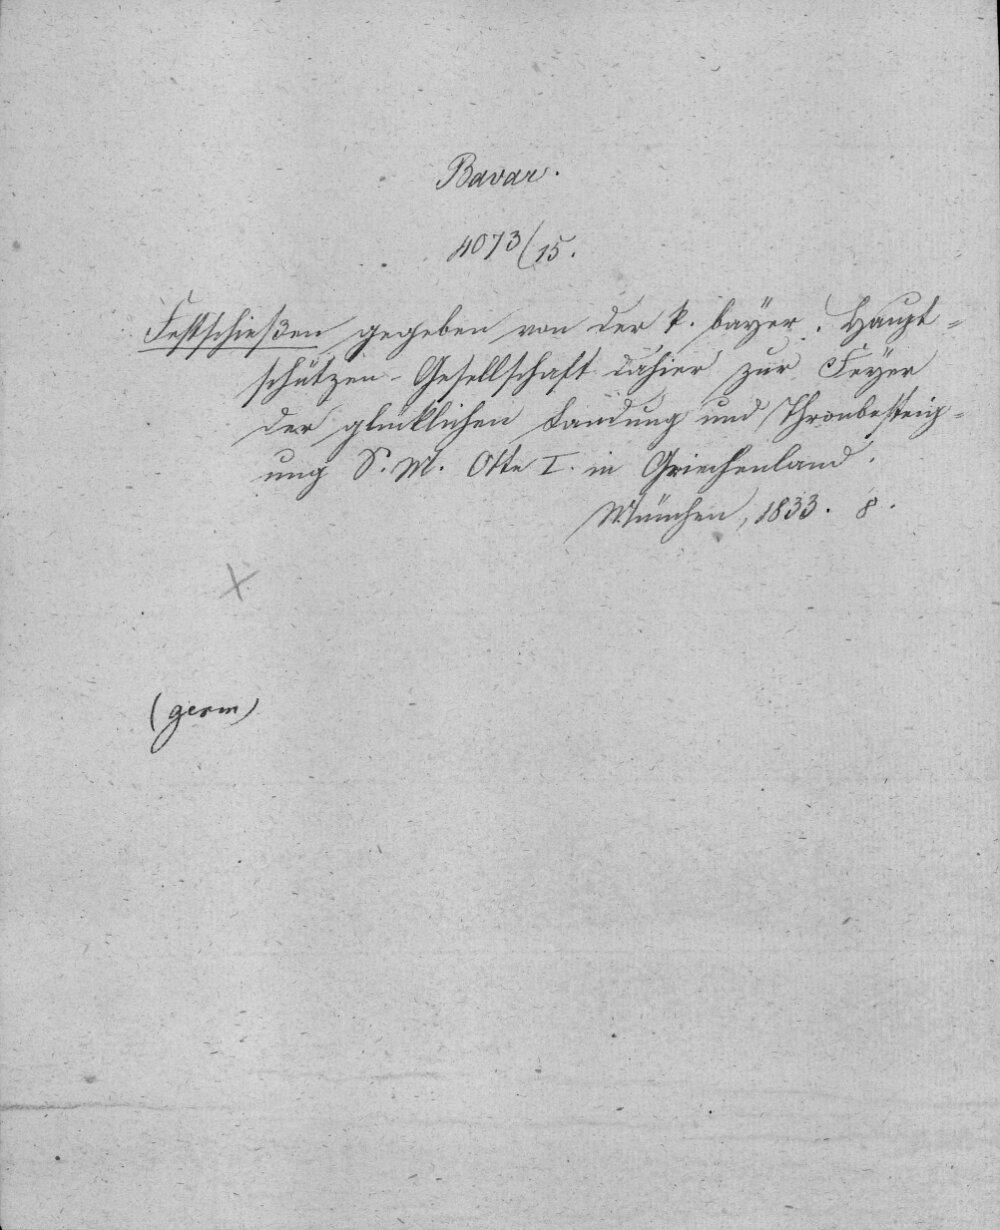 Bavar.
4073/15.
Festschießen gegeben von der k. bayer. Haupt-
schützen-Gesellschaft dahier zur Feyer
der glücklichen Landung und Thronbesteig-
ung S. M. Otto I. in Griechenland.
München, 1833. 8.
(germ)